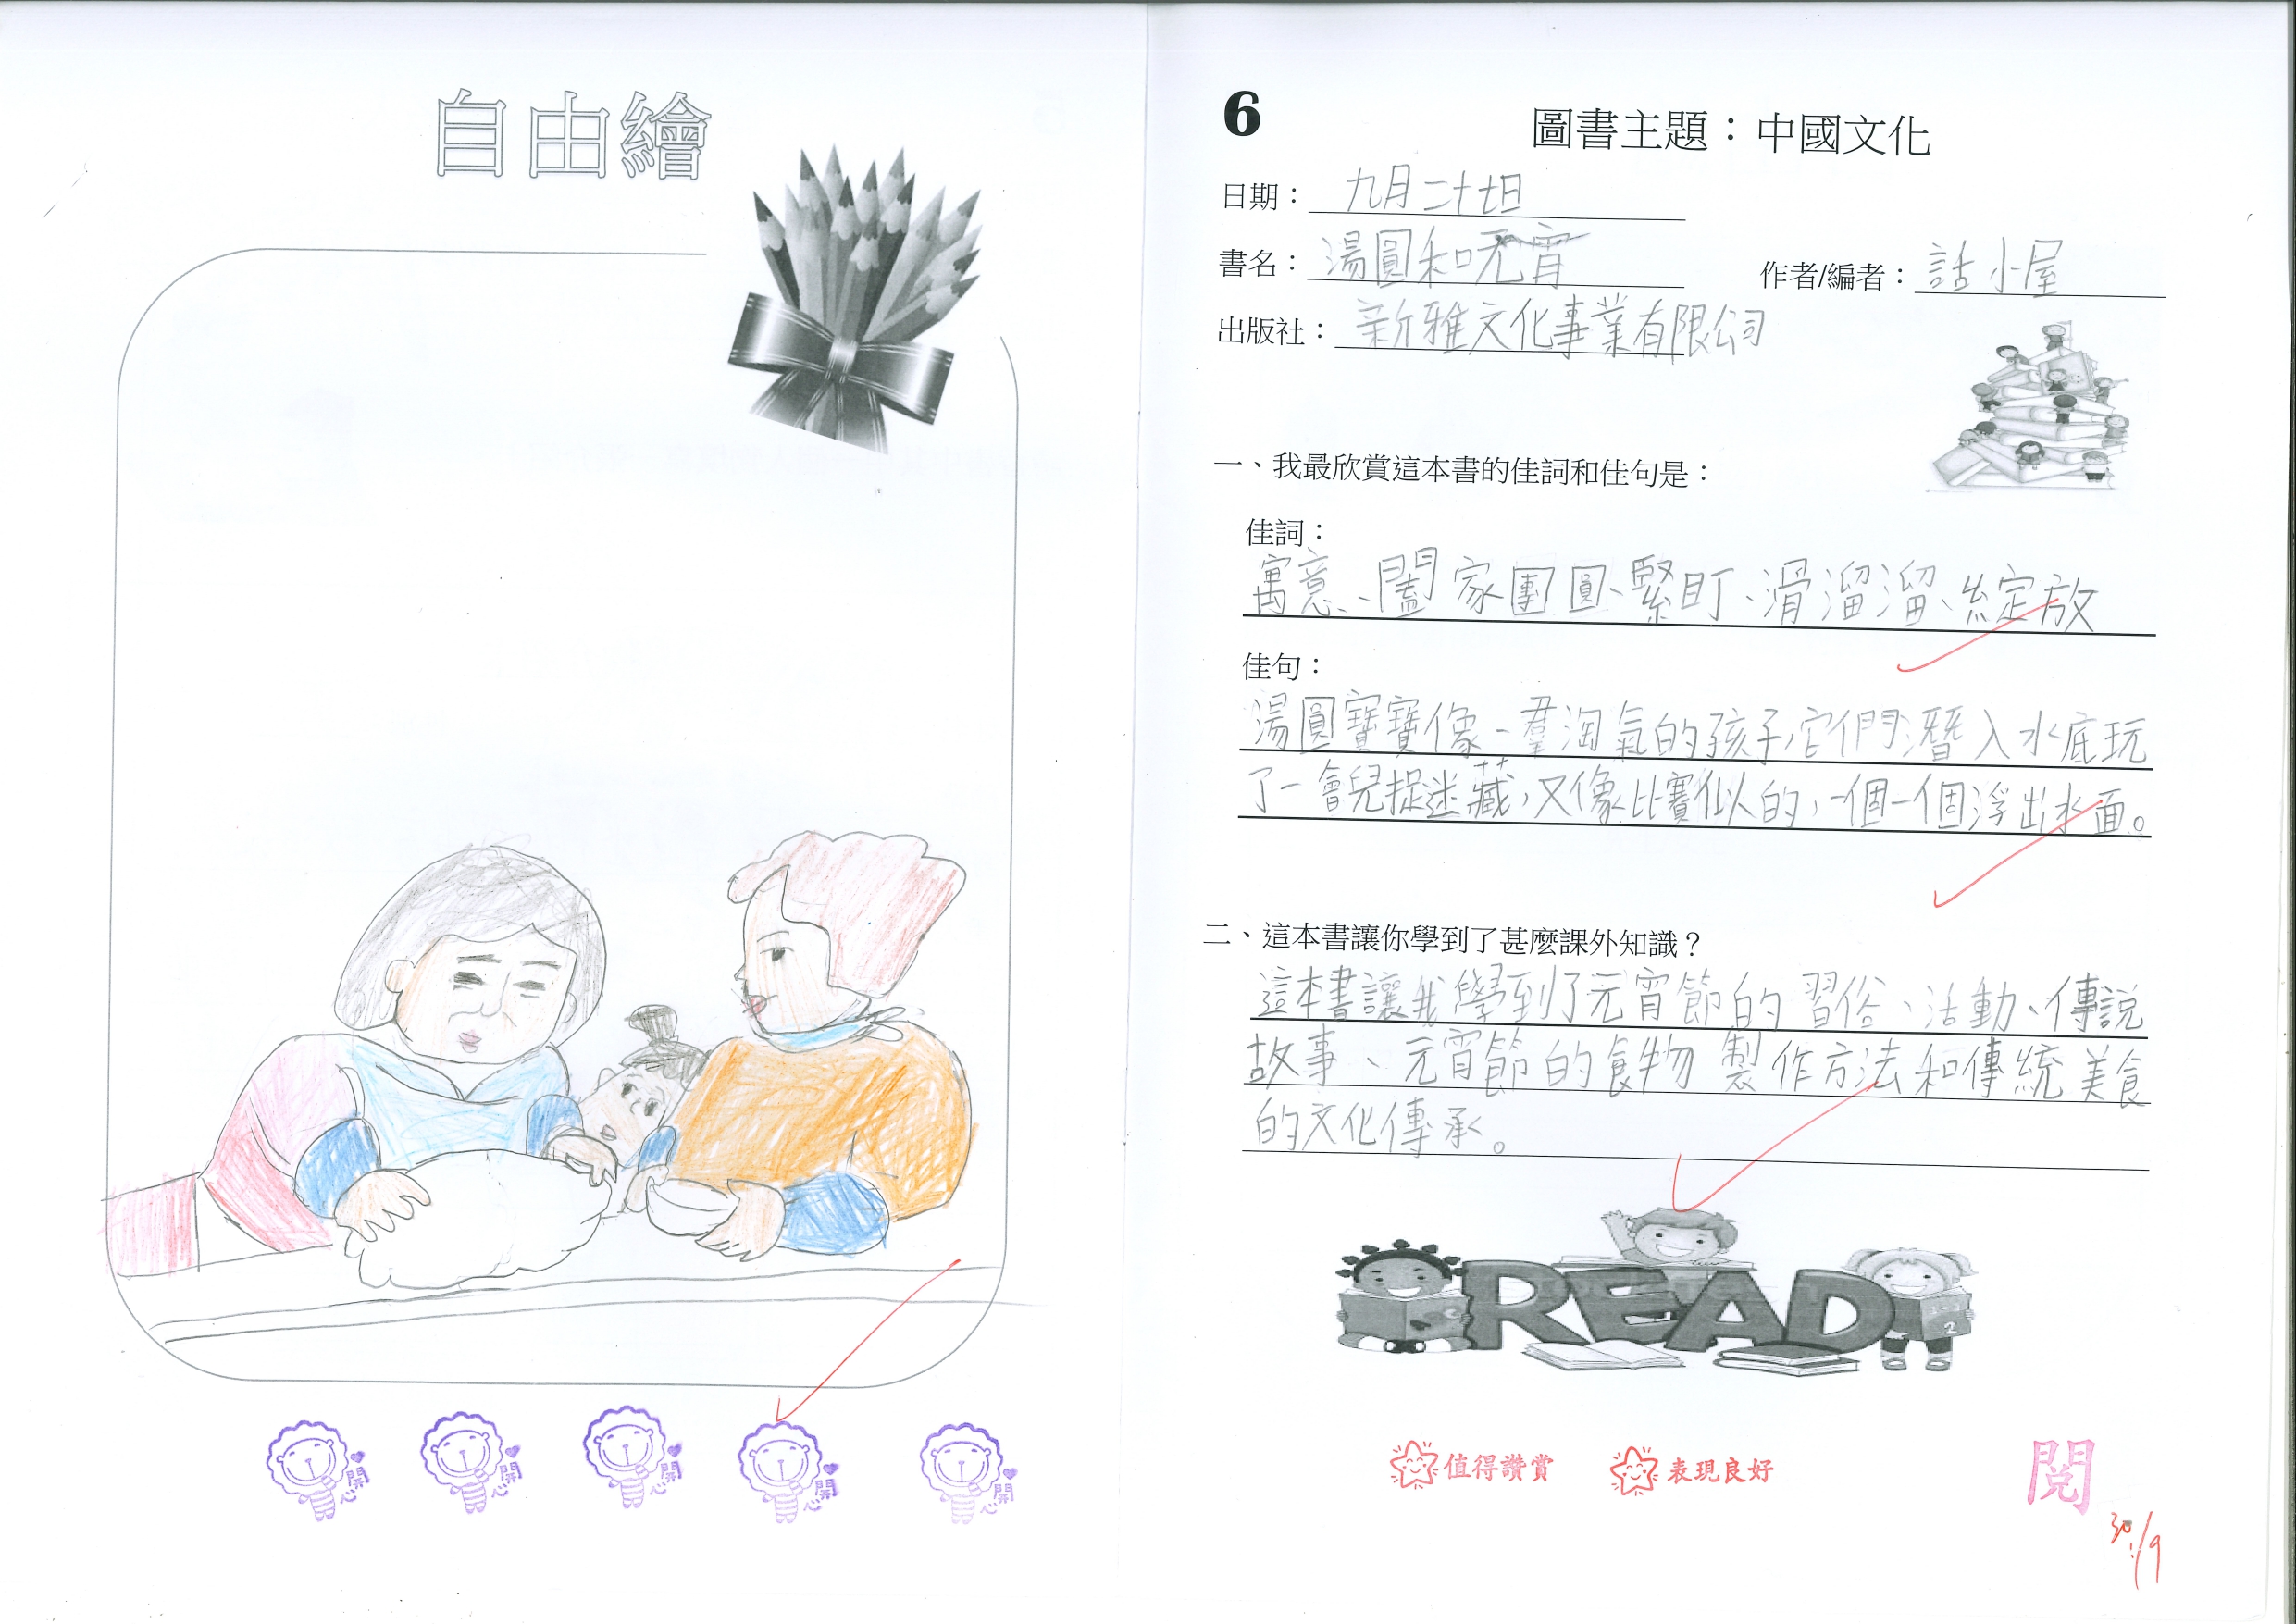 自由繪
開心
開心
開心
開心
開心
6
圖書主題：中國文化
日期：九月二十七日
書名：湯圓和元宵
作者/編者：話小屋
出版社：新雅文化事業有限公司
一、我最欣賞這本書的佳詞和佳句是：
佳詞：
寓意、闔家團圓、緊盯、滑溜溜、綻放
佳句：
湯圓寶寶像一羣淘氣的孩子，它們潛入水底玩
了一會兒捉迷藏，又像比賽似的，一個一個浮出水面。
二、這本書讓你學到了甚麼課外知識？
這本書讓我學到了元宵節的習俗、活動、傳說
故事、元宵節的食物製作方法和傳統美食
的文化傳承。
READ
2
值得讚賞
表現良好
閱
30/9